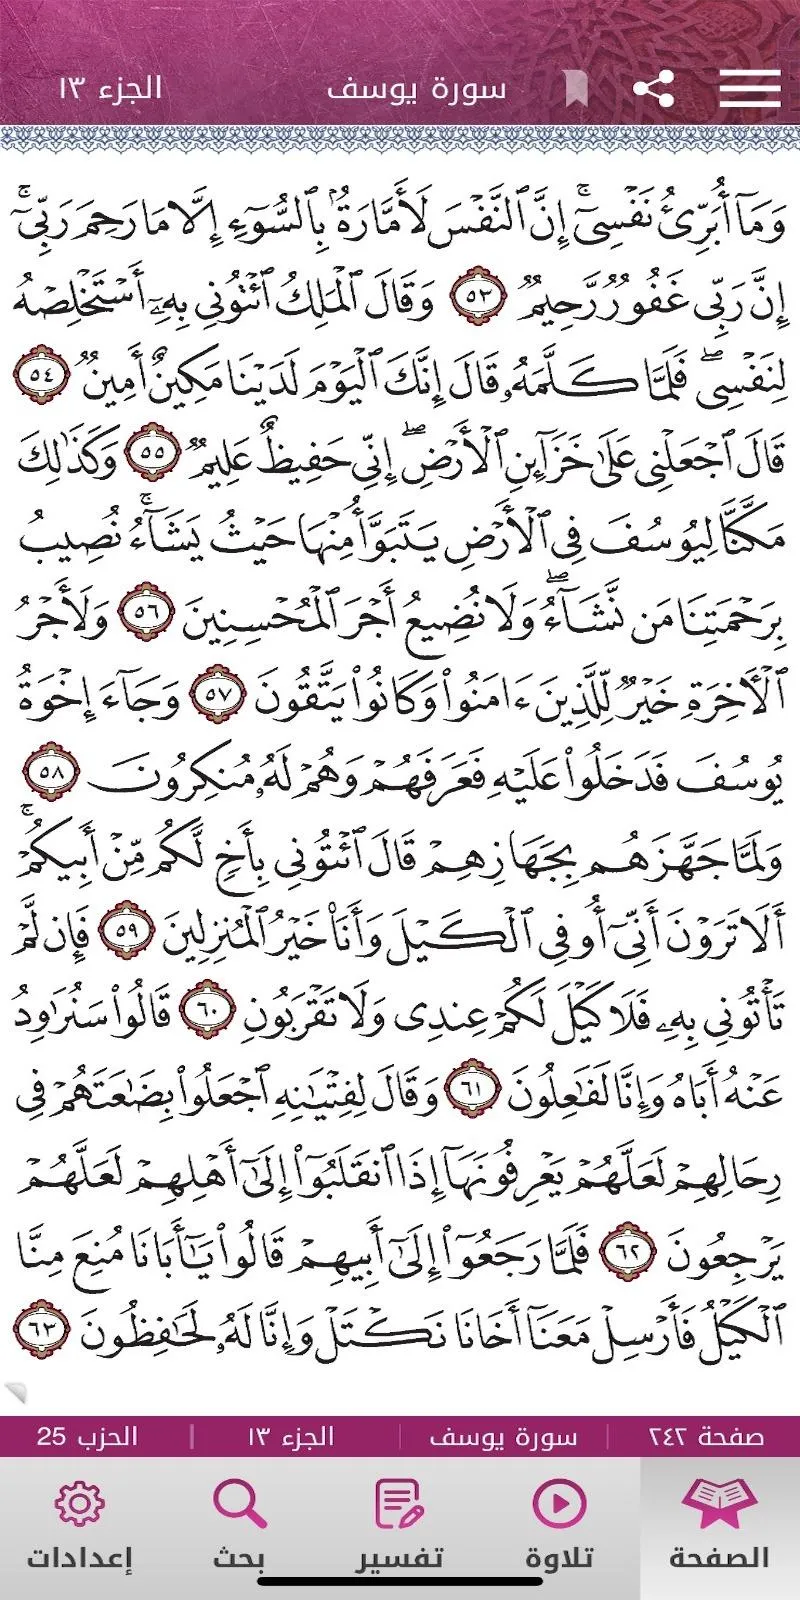 سورة يوسف
الجزء ١٣
وَمَآ أُبَرِّئُ نَفۡسِيٓۚ إِنَّ ٱلنَّفۡسَ لَأَمَّارَةُۢ بِٱلسُّوٓءِ إِلَّا مَا رَحِمَ رَبِّيٓۚ
إِنَّ رَبِّي غَفُورٞ رَّحِيمٞ ٥٣ وَقَالَ ٱلۡمَلِكُ ٱئۡتُونِي بِهِۦٓ أَسۡتَخۡلِصۡهُ
لِنَفۡسِيۖ فَلَمَّا كَلَّمَهُۥ قَالَ إِنَّكَ ٱلۡيَوۡمَ لَدَيۡنَا مَكِينٌ أَمِينٞ ٥٤
قَالَ ٱجۡعَلۡنِي عَلَىٰ خَزَآئِنِ ٱلۡأَرۡضِۖ إِنِّي حَفِيظٌ عَلِيمٞ ٥٥ وَكَذَٰلِكَ
مَكَّنَّا لِيُوسُفَ فِي ٱلۡأَرۡضِ يَتَبَوَّأُ مِنۡهَا حَيۡثُ يَشَآءُۚ نُصِيبُ
بِرَحۡمَتِنَا مَن نَّشَآءُۖ وَلَا نُضِيعُ أَجۡرَ ٱلۡمُحۡسِنِينَ ٥٦ وَلَأَجۡرُ
ٱلۡأٓخِرَةِ خَيۡرٞ لِّلَّذِينَ ءَامَنُواْ وَكَانُواْ يَتَّقُونَ ٥٧ وَجَآءَ إِخۡوَةُ
يُوسُفَ فَدَخَلُواْ عَلَيۡهِ فَعَرَفَهُمۡ وَهُمۡ لَهُۥ مُنكِرُونَ ٥٨
وَلَمَّا جَهَّزَهُم بِجَهَازِهِمۡ قَالَ ٱئۡتُونِي بِأَخٖ لَّكُم مِّنۡ أَبِيكُمۡۚ
أَلَا تَرَوۡنَ أَنِّيٓ أُوفِي ٱلۡكَيۡلَ وَأَنَا۠ خَيۡرُ ٱلۡمُنزِلِينَ ٥٩ فَإِن لَّمۡ
تَأۡتُونِي بِهِۦ فَلَا كَيۡلَ لَكُمۡ عِندِي وَلَا تَقۡرَبُونِ ٦٠ قَالُواْ سَنُرَٰوِدُ
عَنۡهُ أَبَاهُ وَإِنَّا لَفَٰعِلُونَ ٦١ وَقَالَ لِفِتۡيَٰنِهِ ٱجۡعَلُواْ بِضَٰعَتَهُمۡ فِي
رِحَالِهِمۡ لَعَلَّهُمۡ يَعۡرِفُونَهَآ إِذَا ٱنقَلَبُوٓاْ إِلَىٰٓ أَهۡلِهِمۡ لَعَلَّهُمۡ
يَرۡجِعُونَ ٦٢ فَلَمَّا رَجَعُوٓاْ إِلَىٰٓ أَبِيهِمۡ قَالُواْ يَٰٓأَبَانَا مُنِعَ مِنَّا
ٱلۡكَيۡلُ فَأَرۡسِلۡ مَعَنَآ أَخَانَا نَكۡتَلۡ وَإِنَّا لَهُۥ لَحَٰفِظُونَ ٦٣
صفحة ٢٤٢ سورة يوسف الجزء ١٣ الحزب 25
الصفحة تلاوة تفسير بحث إعدادات